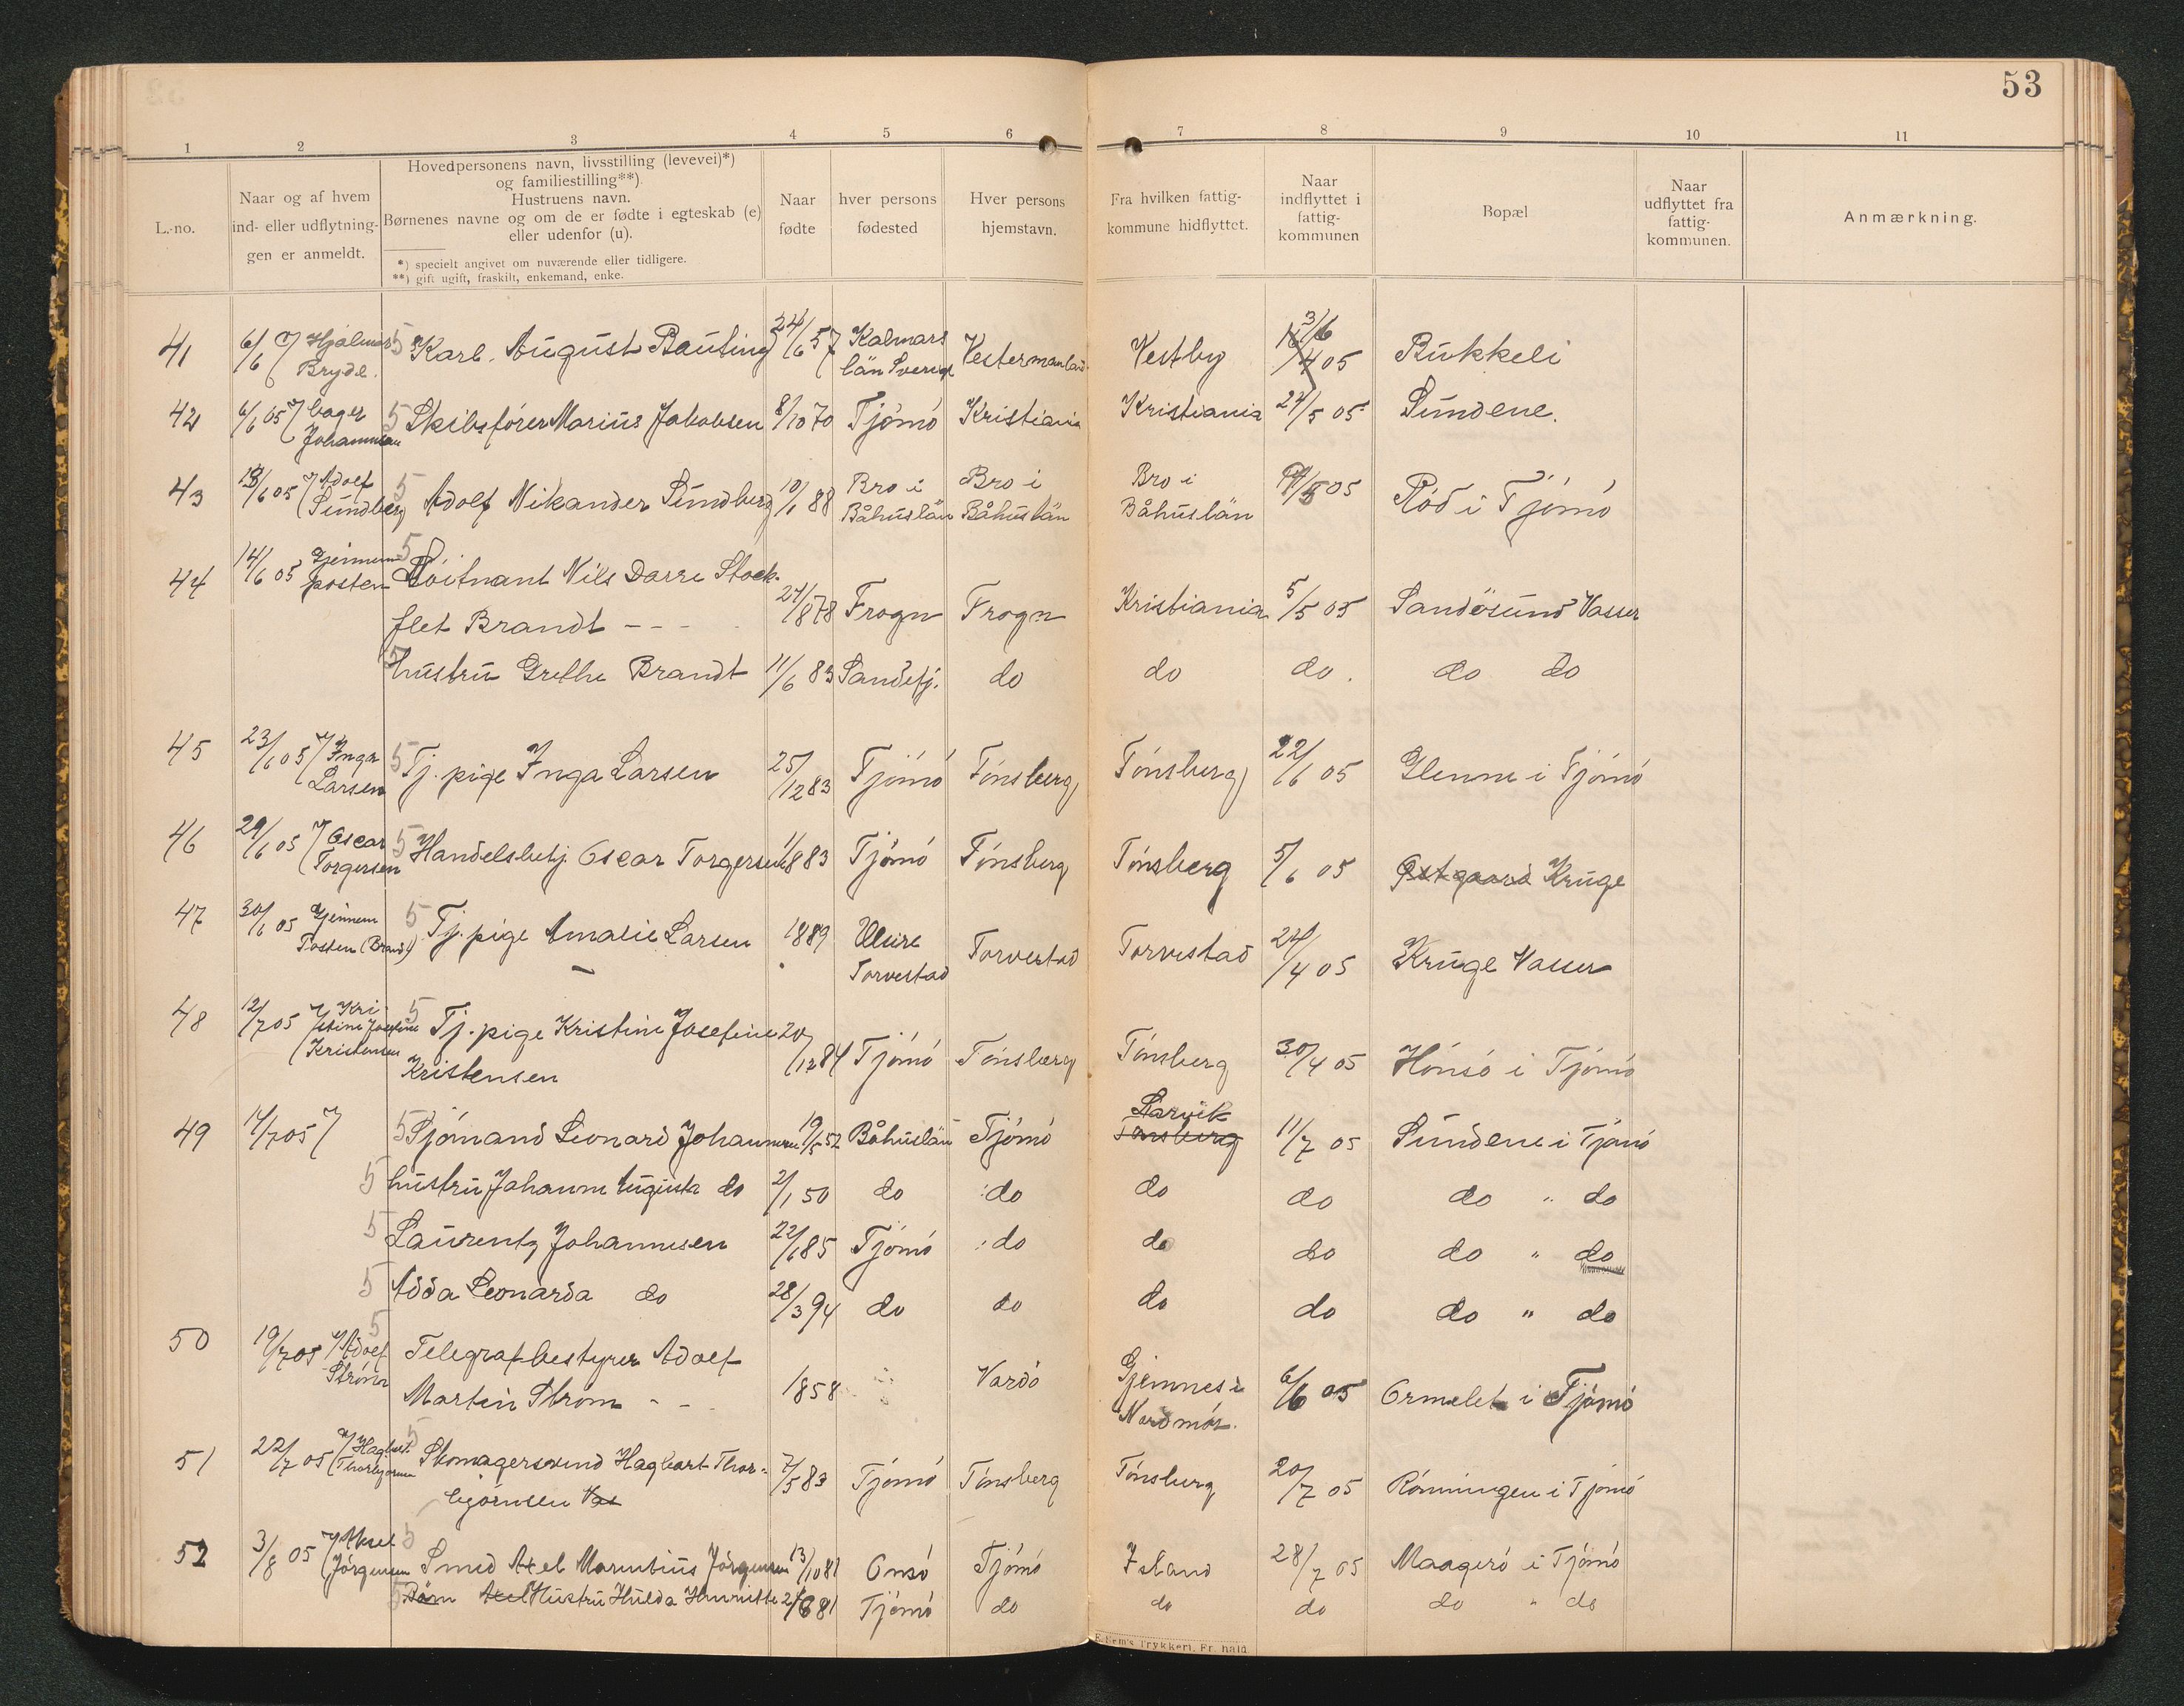 53
1 2 3 4 5 6 7 8 9 10 11
L.-no.
Naar og af hvem
ind- eller udflytnin-
gen er anmeldt.
Hovedpersonens navn, livsstilling (levevei)*)
og familiestilling**).
Hustruens navn.
Børnenes navne og om de er fødte i egteskab (e)
eller udenfor (u).
*) specielt angivet om nuværende eller tidligere.
**) gift ugift, fraskilt, enkemand, enke.
Naar
fødte
hver persons
fødested
Hver persons
hjemstavn.
Fra hvilken fattig-
kommune hidflyttet.
Naar
indflyttet i
fattig-
kommunen
Bopæl
Naar
udflyttet fra
fattig-
kommunen.
Anmærkning.
41 6/6 Hjalmar Bryde. 5 Karl August 24/6 57 Kalmars län Sverige Vestermanland Vestby 3/6 05 Bukkeli
42 6/6 05 Johannesen 5 Skibsfører Marius Jakobsen 8/10 70 Tjømø Kristiania Kristiania 27/5 05 Sundene.
43 13/6 05 Adolf Sundberg 5 Adolf Nikander Sundberg 10/1 88 Bro i Båhuslän Bro i Båhuslän Bro i Båhuslän 05 Rød i Tjømø
44 14/6 05 Gjennem posten 5 Løitnant Nils Darre Stock-
flet Brandt - - - 24/8 78 Frogn Frogn Kristiania 5/5 05 Sandøsund Vasser
5 hustru Grethe Brandt 11/6 83 Sandefj. do do do. do do
45 23/6 05 Inga Larsen 5 Tj. pige Inga Larsen 25/12 83 Tjømø Tønsberg Tønsberg 22/6 05 Glenne i Tjømø
46 29/6 05 Oscar Torgersen 5 Handelsbetj. Oscar Torgersen 83 Tjømø Tønsberg Tønsberg 5/6 05 Østgaard Kruge
47 30/6 05 Gjennem Posten (Brandt) 5 Tj. pige Amalie Larsen 1889 Torvestad Torvestad Torvestad 24/4 05 Kruge Vasser
48 12/7 05 Kristine Josefine Kristensen 5 Tj. pige Kristine Josefine
Kristensen 20/12 84 Tjømø Tønsberg Tønsberg 30/4 05 Hønsø i Tjømø
49 14/7 05 5 Sjømand Leonard Johannesen 19/5 52 Båhuslän Tjømø Larvik Tønsberg 11/7 05 Sundene i Tjømø
5 hustru Johanne Augusta do 2/1 50 do do do do do " do
5 Laurentz Johannesen 22/1 85 Tjømø do do do do " do
5 Adda Leonarda do 28/3 94 do do do do do " do
50 19/7 05 Adolf Strøm 5 Telegrafbestyrer Adolf
Martin Strøm - - 1858 Vardø Gjemnes i Nordmør. 6/6 05 Ormelet i Tjømø
51 22/7 05 Hagbart Thorbjørnsen 5 Skomagersvend Hagbart Thor-
bjørnsen 7/5 83 Tjømø Tønsberg Tønsberg 20/7 05 Rønningen i Tjømø
52 3/8 05 Aksel Jørgensen 5 Smed Axel Jørgensen 13/10 81 Onsø Tjømø Island 28/7 05 Maagerø i Tjømø
5 Børn Axel Hustru Hulda Henriette 81 Tjømø do do do do " do